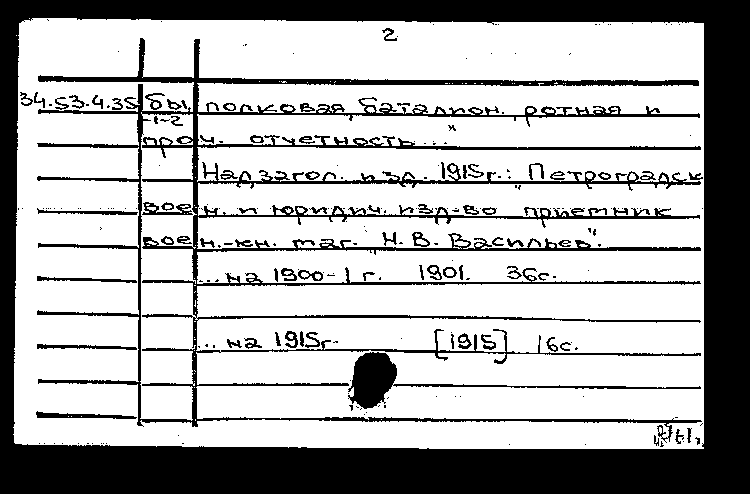 2
34.53.4.35 бы, полковая, баталион., ротная и
-1-2
проч. отчетность..."
Над загол. изд. 1915г.: "Петроградск
воен. и юридич. изд-во приемник
воен.-кн. маг. "Н. В. Васильев".
...на 1900-1 г. 1901. 36с.
...на 1915г. [1915] 16с.